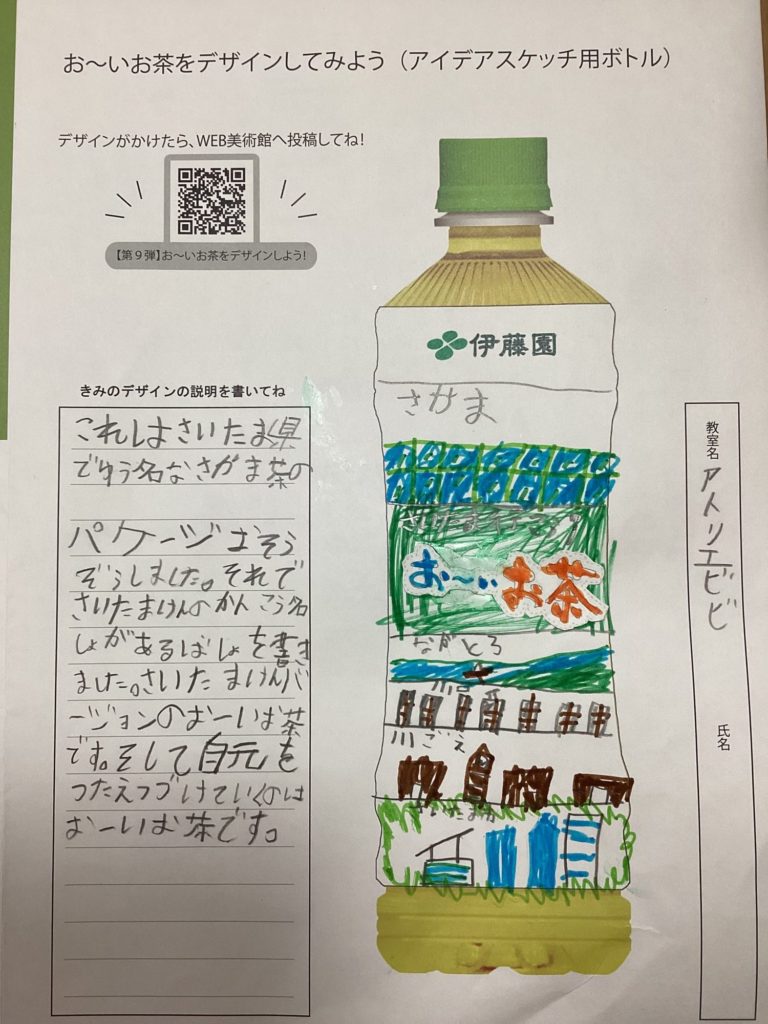 お〜いお茶をデザインしてみよう（アイデアスケッチ用ボトル）
デザインがかけたら、WEB美術館へ投稿してね!
【第９弾】お〜いお茶をデザインしよう!
きみのデザインの説明を書いてね
これはさいたま県
でゆう名なさがま茶の
パケージおそう
ぞうしました。それで
さいたまけんのかんこう名
しょがあるばしょを書き
ました。さいたまけんバ
ージョンのおーいお茶
です。そして自元を
つたえつづけていくのは
おーいお茶です。
伊藤園
さやま
お〜いお茶
ながとろ
川ごえ
さいたま
教室名
アトリエビビ
氏名